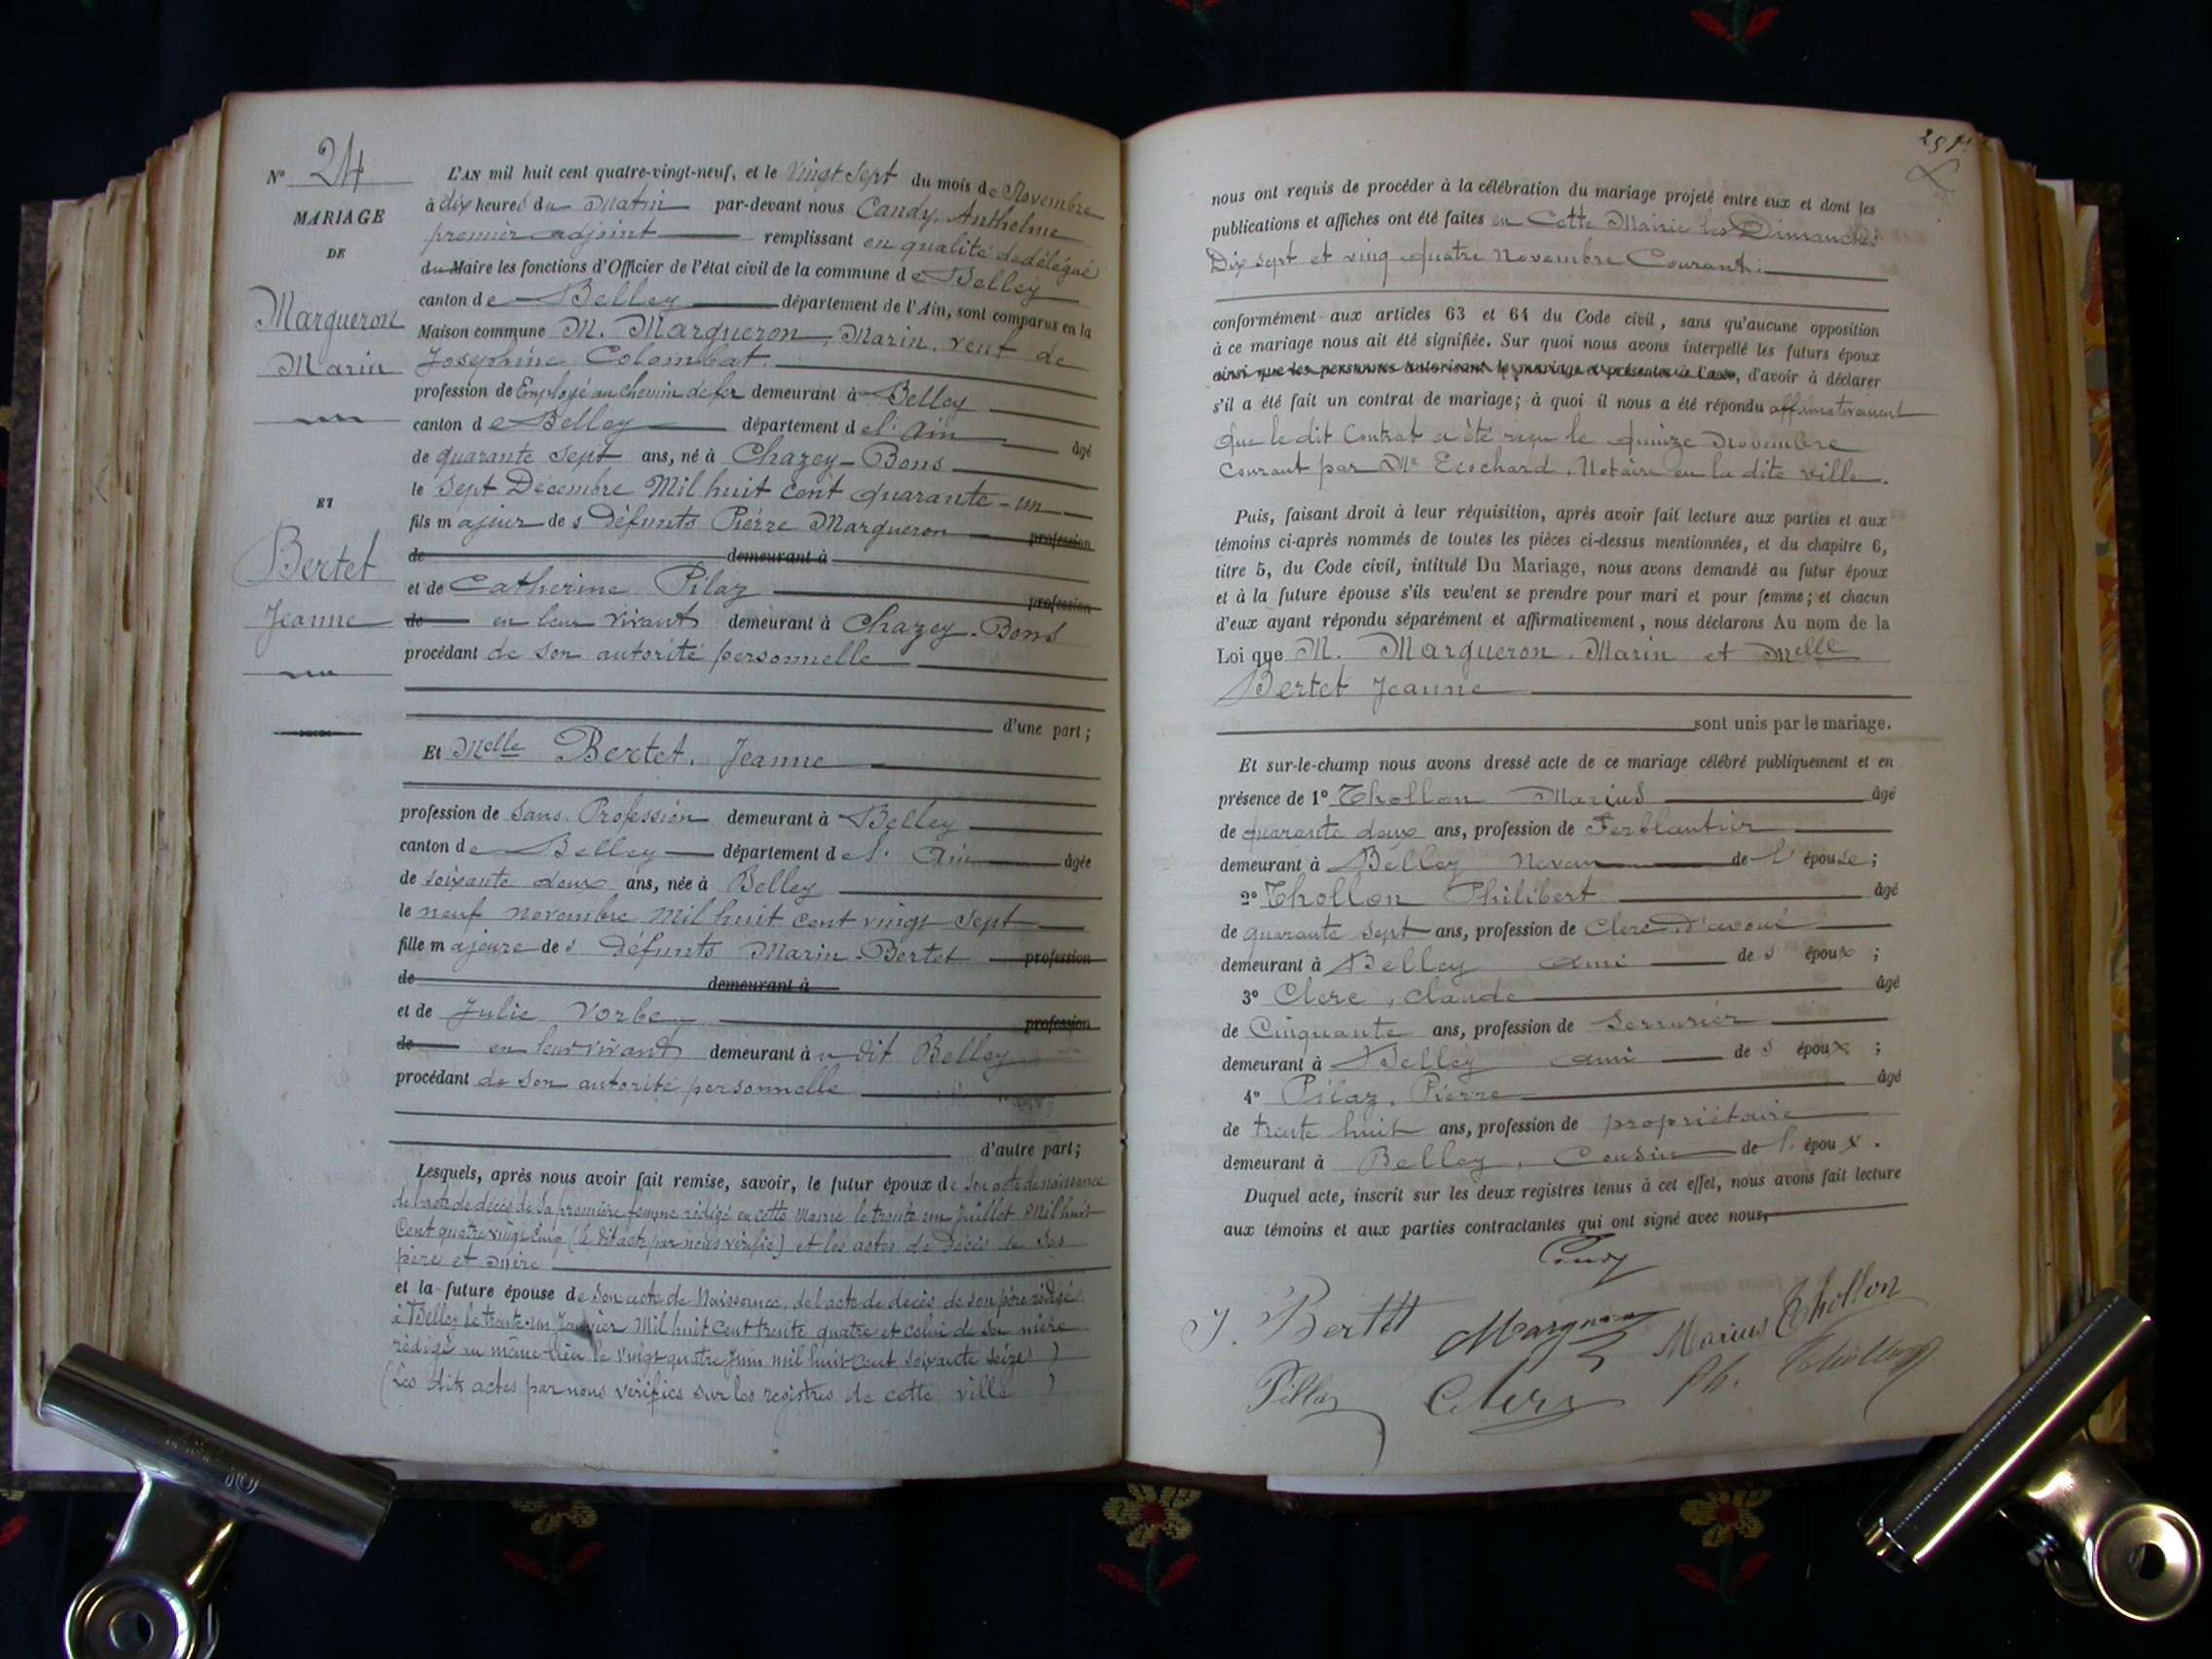 N° 24
MARIAGE
DE
Margueron
Marin
ET
Bertet
Jeanne
L'AN mil huit cent quatre-vingt-neuf, et le Vingt sept du mois de Novembre
à dix heures du Matin par-devant nous Candy, Anthelme
premier adjoint remplissant en qualité de délégué
du Maire les fonctions d'Officier de l'état civil de la commune de Belley
canton de Belley département de l'Ain, sont comparus en la
Maison commune M. Margueron, Marin, veuf de
Josephine Colombat.
profession de Employé au chemin de fer demeurant à Belley
canton de Belley département de l'Ain âgé
de quarante sept ans, né à Chazey-Bons
le sept Décembre Mil huit cent quarante-un
fils majeur des Défunts Pierre Margueron profession
de demeurant à
et de Catherine Pilaz profession
de en leur vivant demeurant à Chazey-Bons
procédant de son autorité personnelle
d'une part ;
Et Melle Bertet, Jeanne
profession de sans Profession demeurant à Belley
canton de Belley département de l'Ain âgée
de soixante deux ans, née à Belley
le neuf novembre Mil huit cent vingt sept
fille majeure des Défunts Marin Bertet profession
de demeurant à
et de Julie Vorbe profession
de en leur vivant demeurant àu dit Belley
procédant de son autorité personnelle
d'autre part ;
Lesquels, après nous avoir fait remise, savoir, le futur époux de son acte de naissance
de l'acte de décès de sa première femme rédigé en cette Mairie le trente un Juillet Mil huit
Cent quatre vingt cinq (le dit acte par nous vérifié) et les actes de Décès de ses
père et mère
et la future épouse de son acte de Naissance, de l'acte de décès de son père rédigé
à Belley le trente-un Janvier Mil huit cent trente quatre et celui de sa mère
rédigé au même lieu le vingt quatre Juin mil huit cent soixante seize )
(Les dits actes par nous vérifiés sur les registres de cette ville )
nous ont requis de procéder à la célébration du mariage projeté entre eux et dont les
publications et affiches ont été faites en Cette Mairie les Dimanches
Dix sept et ving quatre Novembre Courant.
conformément aux articles 63 et 64 du Code civil, sans qu'aucune opposition
à ce mariage nous ait été signifiée. Sur quoi nous avons interpellé les futurs époux
ainsi que les personnes autorisant le mariage et présentes à l'acte, d'avoir à déclarer
s'il a été fait un contrat de mariage ; à quoi il nous a été répondu affirmativement
que le dit Contrat a été reçu le quinze Novembre
courant par Me Ecochard, Notaire en la dite ville.
Puis, faisant droit à leur réquisition, après avoir fait lecture aux parties et aux
témoins ci-après nommés de toutes les pièces ci-dessus mentionnées, et du chapitre 6,
titre 5, du Code civil, intitulé Du Mariage, nous avons demandé au futur époux
et à la future épouse s'ils veulent se prendre pour mari et pour femme ; et chacun
d'eux ayant répondu séparément et affirmativement, nous déclarons Au nom de la
Loi que M. Margueron, Marin et Melle
Bertet Jeanne
sont unis par le mariage.
Et sur-le-champ nous avons dressé acte de ce mariage célébré publiquement et en
présence de 1° Thollon Marius âgé
de quarante deux ans, profession de Ferblantier
demeurant à Belley Neveu de l'épouse ;
2° Thollon Philibert âgé
de quarante sept ans, profession de Clerc d'avoué
demeurant à Belley ami des époux ;
3° Clerc, Claude âgé
de Cinquante ans, profession de Serrurier
demeurant à Belley ami des époux ;
4° Pilaz, Pierre âgé
de trente huit ans, profession de propriétaire
demeurant à Belley, Cousin de l'époux.
Duquel acte, inscrit sur les deux registres tenus à cet effet, nous avons fait lecture
aux témoins et aux parties contractantes qui ont signé avec nous,
Candy
J. Bertet Margueron Marius Thollon
Pillaz Clerc Ph. Thollon